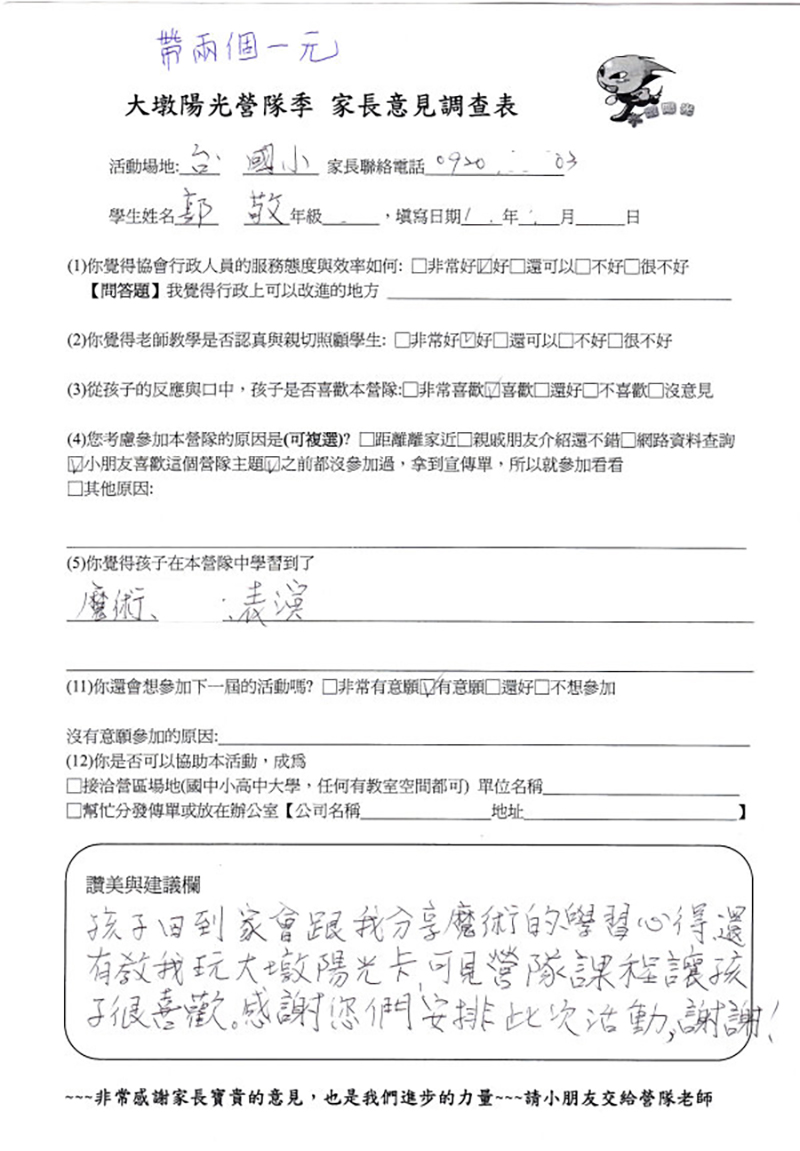 帶兩個一元
大墩陽光營隊季 家長意見調查表
大墩陽光
活動場地:台 國小 家長聯絡電話0920 03
學生姓名 郭 敬 年級 ,填寫日期 年 月 日
(1)你覺得協會行政人員的服務態度與效率如何: □非常好☑好□還可以□不好□很不好
【問答題】我覺得行政上可以改進的地方
(2)你覺得老師教學是否認真與親切照顧學生: □非常好☑好□還可以□不好□很不好
(3)從孩子的反應與口中,孩子是否喜歡本營隊:□非常喜歡☑喜歡□還好□不喜歡□沒意見
(4)您考慮參加本營隊的原因是(可複選)? □距離離家近□親戚朋友介紹還不錯□網路資料查詢
☑小朋友喜歡這個營隊主題☑之前都沒參加過,拿到宣傳單,所以就參加看看
□其他原因:
(5)你覺得孩子在本營隊中學習到了
魔術、 表演
(11)你還會想參加下一屆的活動嗎? □非常有意願☑有意願□還好□不想參加
沒有意願參加的原因:
(12)你是否可以協助本活動,成為
□接洽營區場地(國中小高中大學,任何有教室空間都可) 單位名稱
□幫忙分發傳單或放在辦公室【公司名稱 地址 】
讚美與建議欄
孩子回到家會跟我分享魔術的學習心得還
有教我玩大墩陽光卡,可見營隊課程讓孩
子很喜歡。感謝您們安排此次活動,謝謝!
~~~非常感謝家長寶貴的意見,也是我們進步的力量~~~請小朋友交給營隊老師